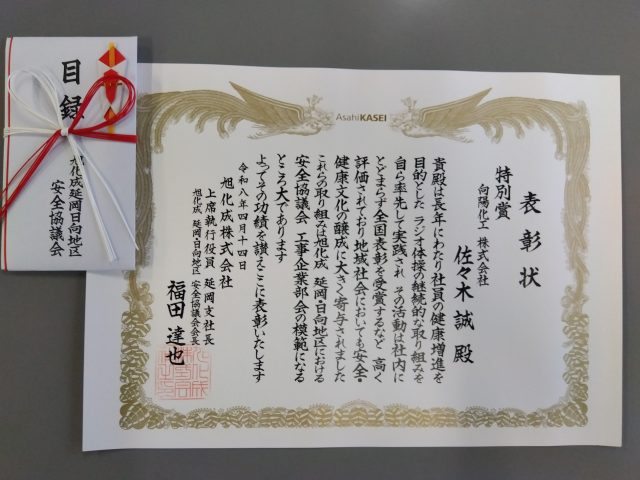 目録
旭化成延岡日向地区
安全協議会
AsahiKASEI
表彰状
特別賞
向陽化工 株式会社
佐々木 誠 殿
貴殿は長年にわたり社員の健康増進を
目的とした ラジオ体操の継続的な取り組みを
自ら率先して実践され その活動は社内に
とどまらず全国表彰を受賞するなど 高く
評価されており地域社会においても安全・
健康文化の醸成に大きく寄与されました
これらの取り組みは旭化成 延岡・日向地区における
安全協議会 工事企業部会の模範になる
ところ大であります
よってその功績を讃えここに表彰いたします
令和八年四月十四日
旭化成株式会社
上席執行役員 延岡支社長
旭化成 延岡・日向地区 安全協議会会長
福田 達也